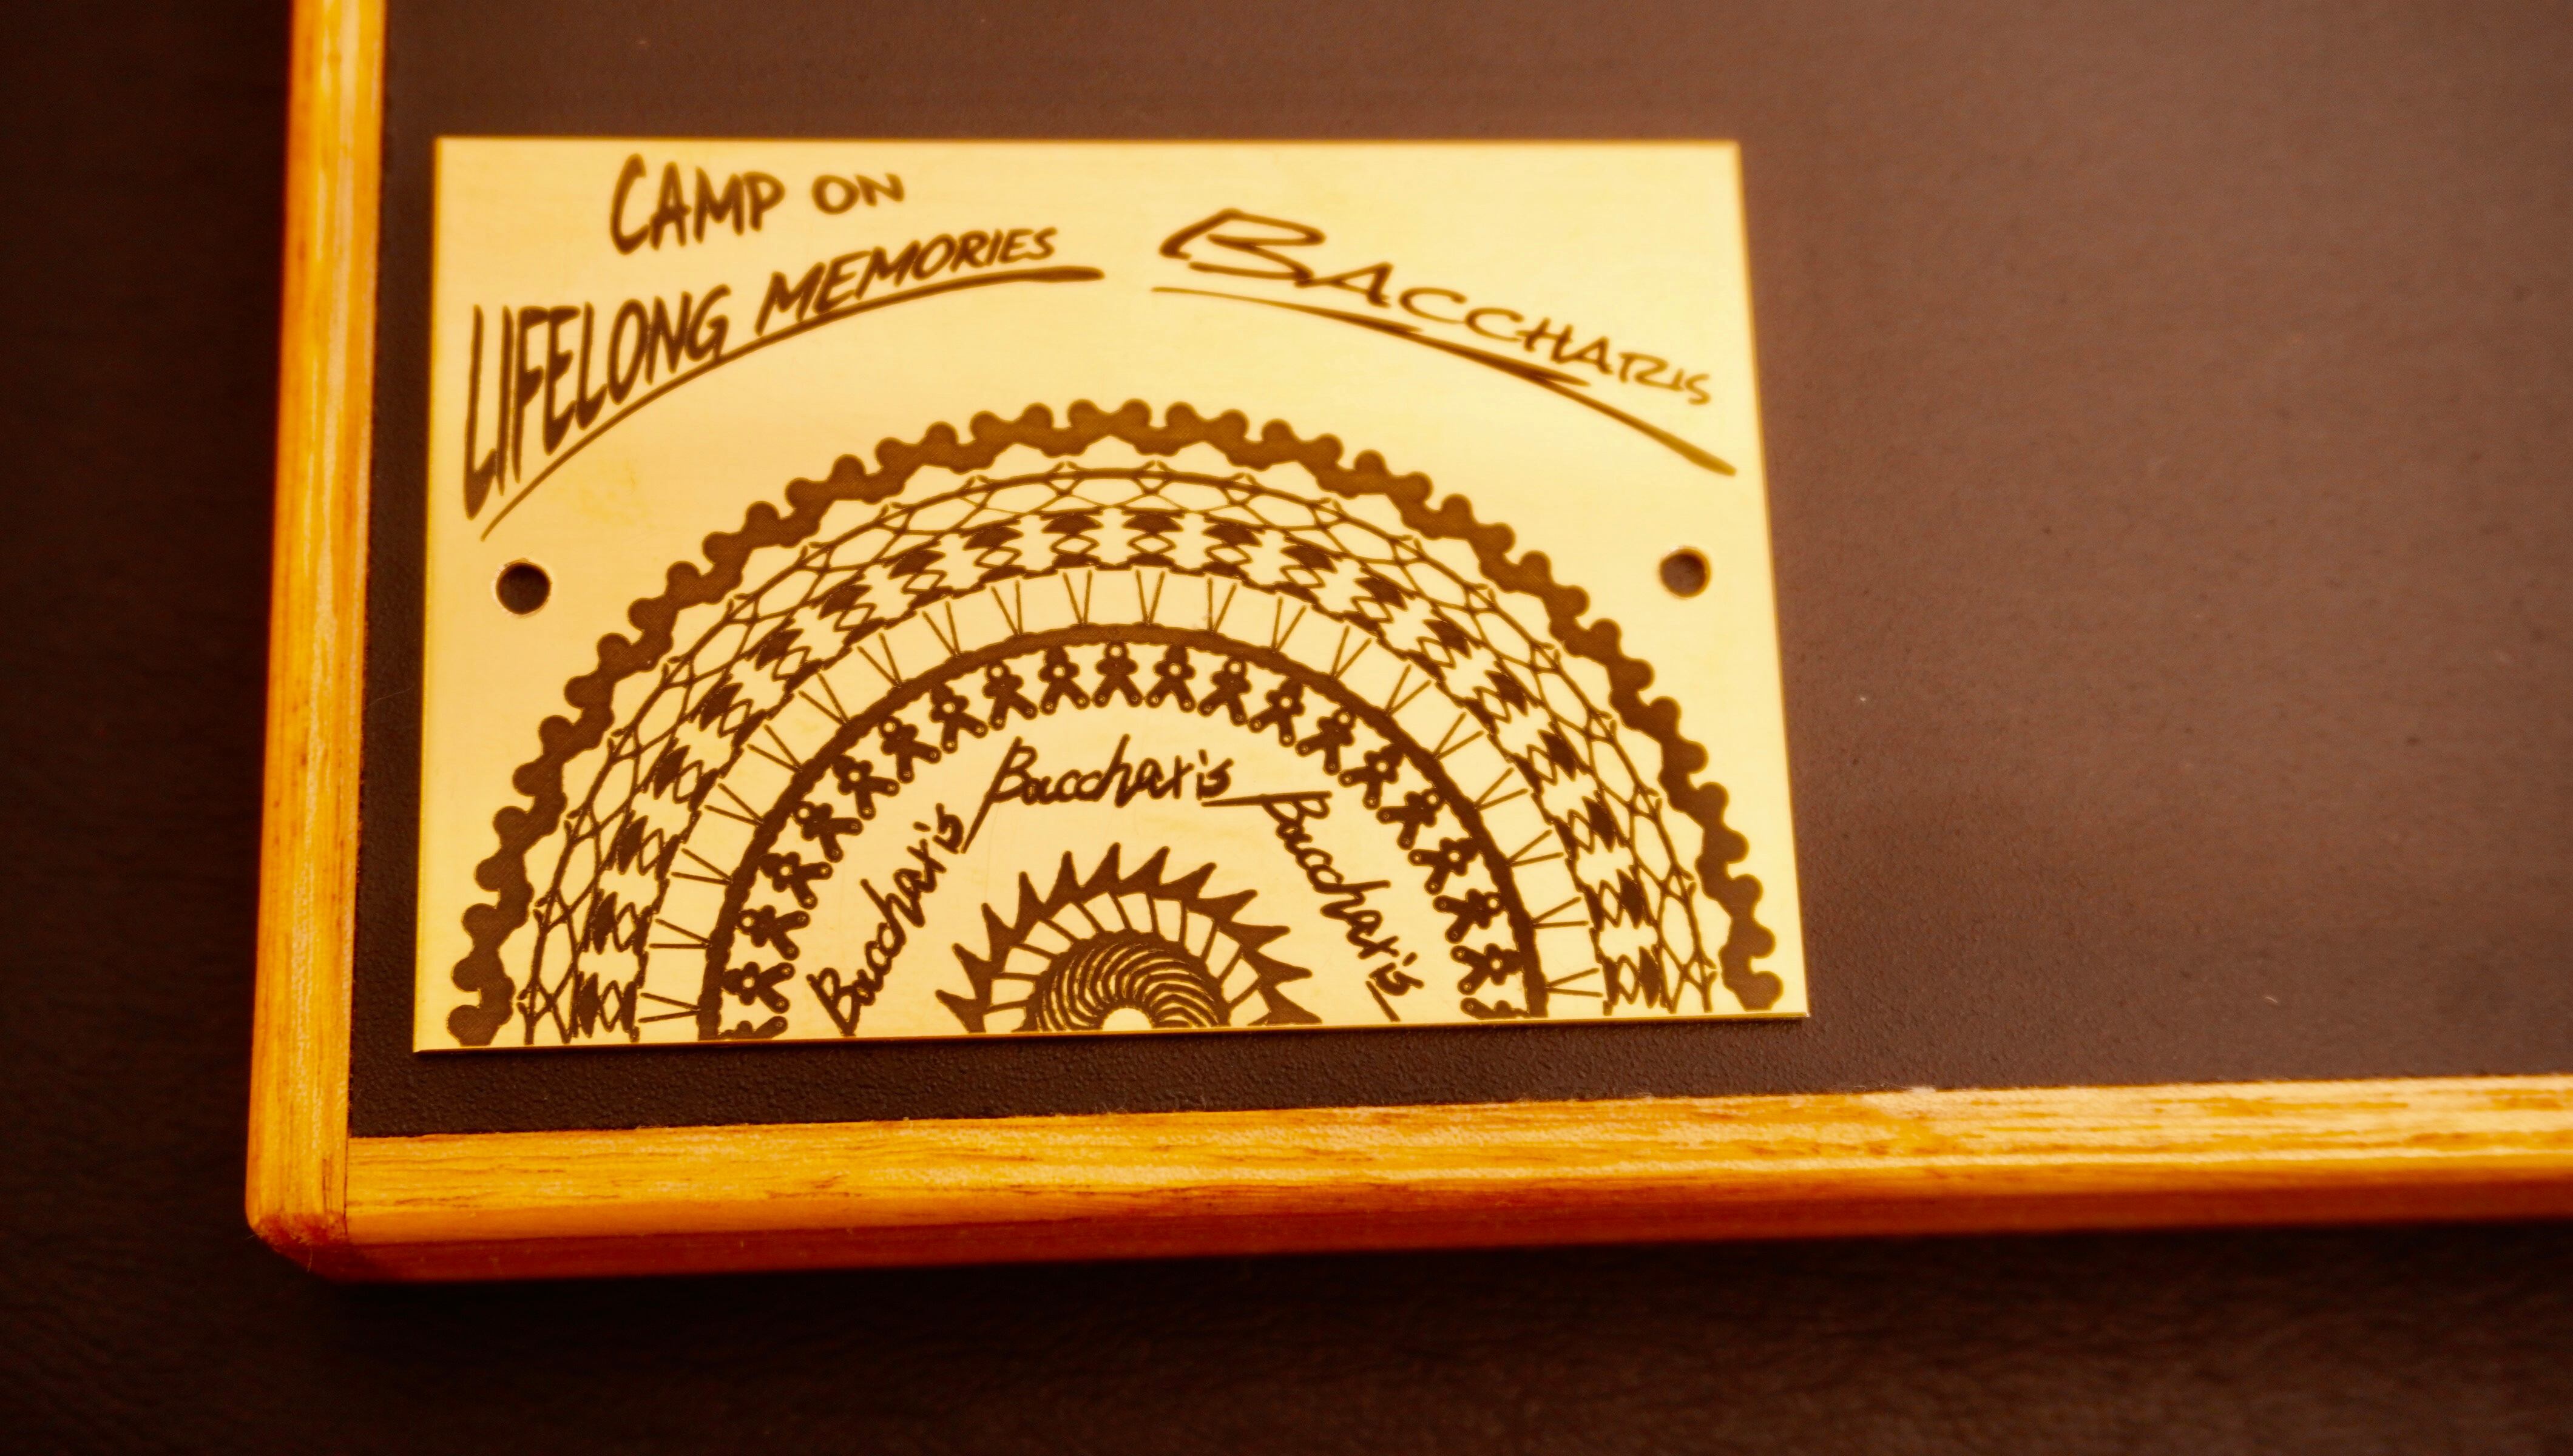 CAMP ON
LIFELONG MEMORIES
BACCHARIS
Baccharis
Baccharis
Baccharis